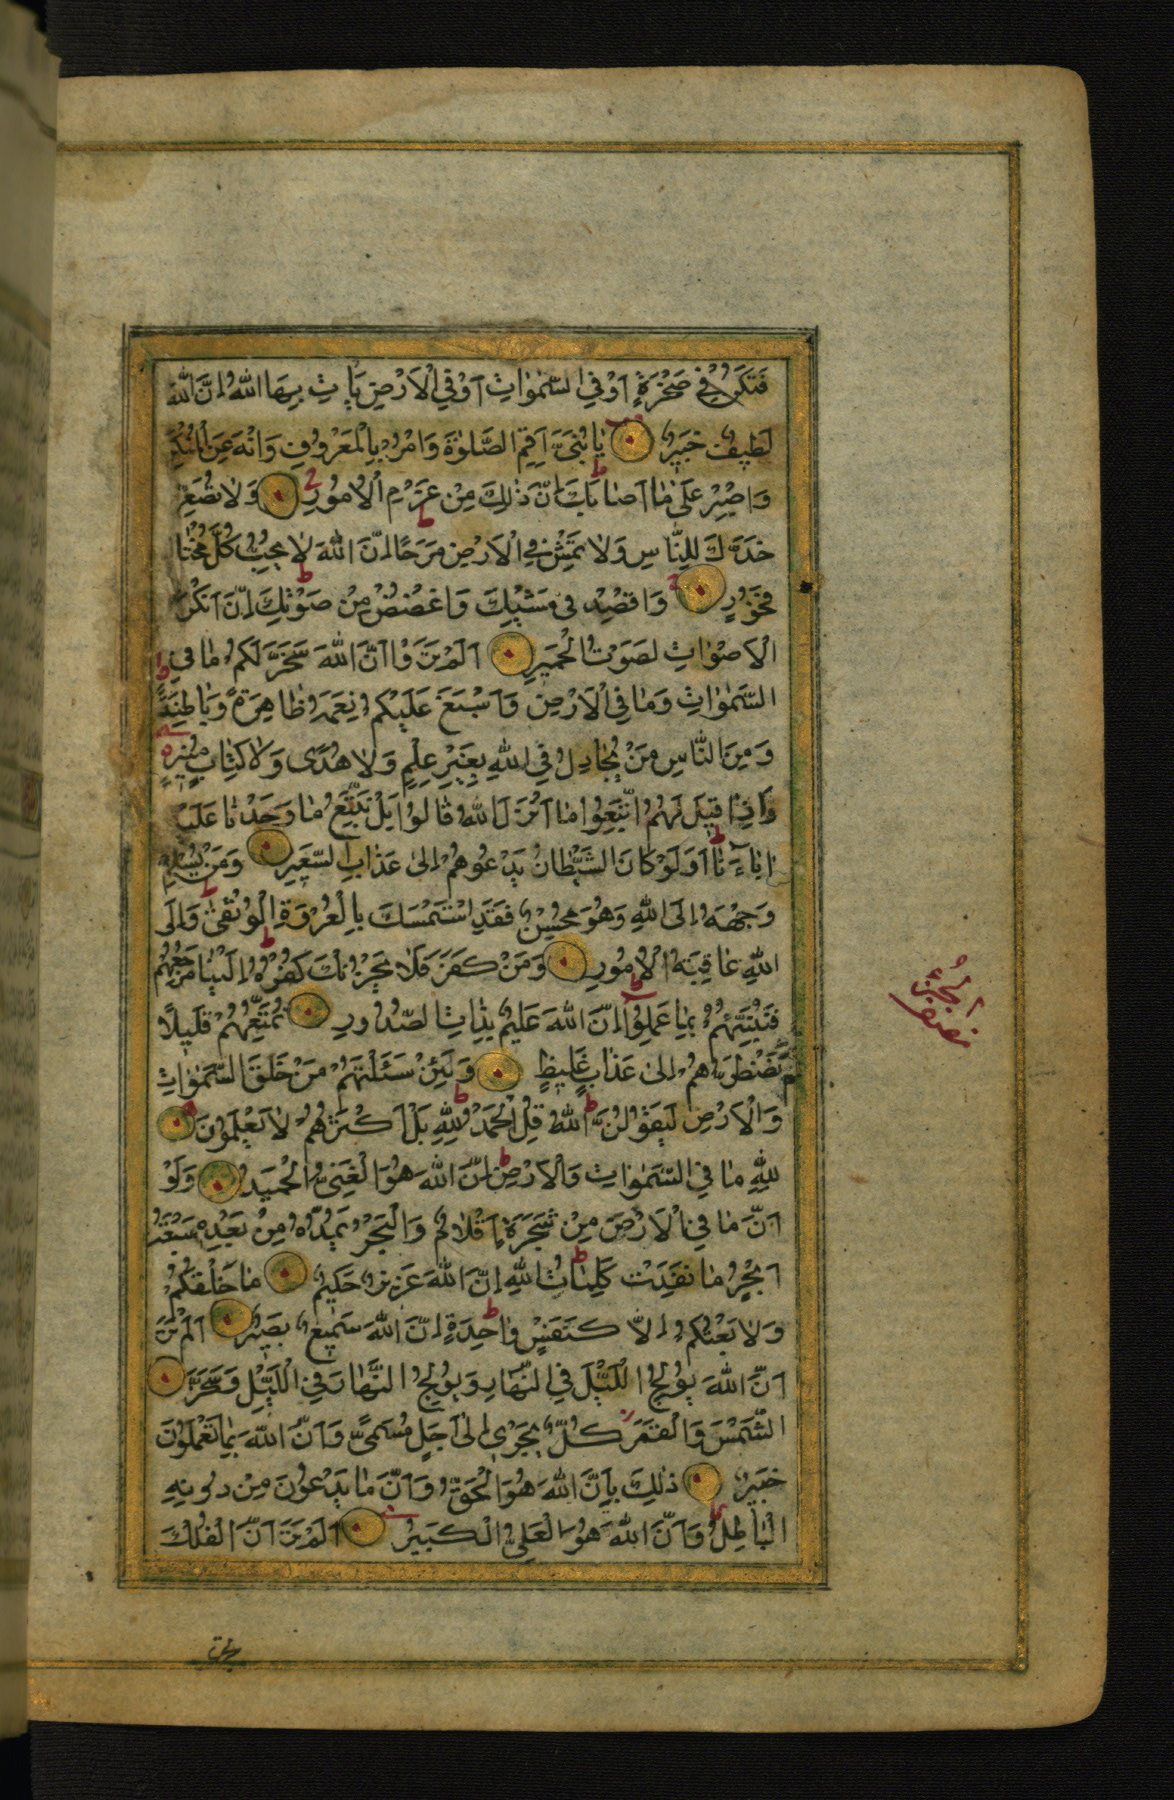 فَتَكُنْ فِي صَخْرَةٍ اَوْ فِي السَّمٰوَاتِ اَوْ فِي الْاَرْضِ يَاْتِ بِهَا اللّٰهُ اِنَّ اللّٰهَ
لَطِيفٌ خَبِيرٌ يَا بُنَيَّ اَقِمِ الصَّلٰوةَ وَاْمُرْ بِالْمَعْرُوفِ وَانْهَ عَنِ الْمُنْكَرِ
وَاصْبِرْ عَلٰى مَا اَصَابَكَ اِنَّ ذٰلِكَ مِنْ عَزْمِ الْاُمُورِ وَلَا تُصَعِّرْ
خَدَّكَ لِلنَّاسِ وَلَا تَمْشِ فِي الْاَرْضِ مَرَحًا اِنَّ اللّٰهَ لَا يُحِبُّ كُلَّ مُخْتَالٍ
فَخُورٍ وَاقْصِدْ فِي مَشْيِكَ وَاغْضُضْ مِنْ صَوْتِكَ اِنَّ اَنْكَرَ
الْاَصْوَاتِ لَصَوْتُ الْحَمِيرِ اَلَمْ تَرَوْا اَنَّ اللّٰهَ سَخَّرَ لَكُمْ مَا فِي
السَّمٰوَاتِ وَمَا فِي الْاَرْضِ وَاَسْبَغَ عَلَيْكُمْ نِعَمَهُ ظَاهِرَةً وَبَاطِنَةً
وَمِنَ النَّاسِ مَنْ يُجَادِلُ فِي اللّٰهِ بِغَيْرِ عِلْمٍ وَلَا هُدًى وَلَا كِتَابٍ مُنِيرٍ
وَاِذَا قِيلَ لَهُمُ اتَّبِعُوا مَا اَنْزَلَ اللّٰهُ قَالُوا بَلْ نَتَّبِعُ مَا وَجَدْنَا عَلَيْهِ
اٰبَاءَنَا اَوَلَوْ كَانَ الشَّيْطَانُ يَدْعُوهُمْ اِلٰى عَذَابِ السَّعِيرِ وَمَنْ يُسْلِمْ
وَجْهَهُ اِلَى اللّٰهِ وَهُوَ مُحْسِنٌ فَقَدِ اسْتَمْسَكَ بِالْعُرْوَةِ الْوُثْقٰى وَاِلَى
اللّٰهِ عَاقِبَةُ الْاُمُورِ وَمَنْ كَفَرَ فَلَا يَحْزُنْكَ كُفْرُهُ اِلَيْنَا مَرْجِعُهُمْ
فَنُنَبِّئُهُمْ بِمَا عَمِلُوا اِنَّ اللّٰهَ عَلِيمٌ بِذَاتِ الصُّدُورِ نُمَتِّعُهُمْ قَلِيلًا
ثُمَّ نَضْطَرُّهُمْ اِلٰى عَذَابٍ غَلِيظٍ وَلَئِنْ سَئَلْتَهُمْ مَنْ خَلَقَ السَّمٰوَاتِ
وَالْاَرْضَ لَيَقُولُنَّ اللّٰهُ قُلِ الْحَمْدُ لِلّٰهِ بَلْ اَكْثَرُهُمْ لَا يَعْلَمُونَ
لِلّٰهِ مَا فِي السَّمٰوَاتِ وَالْاَرْضِ اِنَّ اللّٰهَ هُوَ الْغَنِيُّ الْحَمِيدُ وَلَوْ
اَنَّ مَا فِي الْاَرْضِ مِنْ شَجَرَةٍ اَقْلَامٌ وَالْبَحْرُ يَمُدُّهُ مِنْ بَعْدِهِ سَبْعَةُ
اَبْحُرٍ مَا نَفِدَتْ كَلِمَاتُ اللّٰهِ اِنَّ اللّٰهَ عَزِيزٌ حَكِيمٌ مَا خَلْقُكُمْ
وَلَا بَعْثُكُمْ اِلَّا كَنَفْسٍ وَاحِدَةٍ اِنَّ اللّٰهَ سَمِيعٌ بَصِيرٌ اَلَمْ تَرَ
اَنَّ اللّٰهَ يُولِجُ اللَّيْلَ فِي النَّهَارِ وَيُولِجُ النَّهَارَ فِي اللَّيْلِ وَسَخَّرَ
الشَّمْسَ وَالْقَمَرَ كُلٌّ يَجْرِي اِلٰى اَجَلٍ مُسَمًّى وَاَنَّ اللّٰهَ بِمَا تَعْمَلُونَ
خَبِيرٌ ذٰلِكَ بِاَنَّ اللّٰهَ هُوَ الْحَقُّ وَاَنَّ مَا يَدْعُونَ مِنْ دُونِهِ
الْبَاطِلُ وَاَنَّ اللّٰهَ هُوَ الْعَلِيُّ الْكَبِيرُ اَلَمْ تَرَ اَنَّ الْفُلْكَ